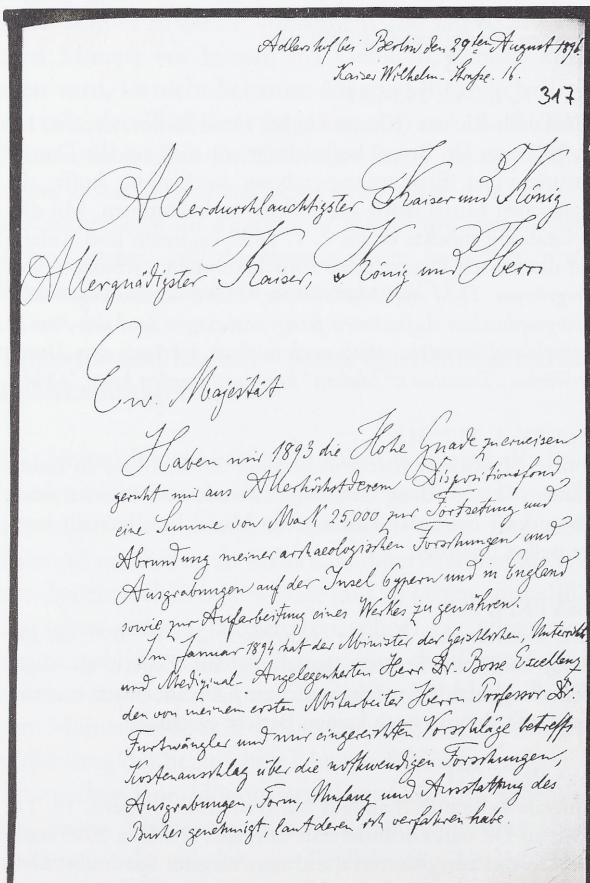 Adlershof bei Berlin den 29ten August 1896.
Kaiser Wilhelm-Straße. 16.
317
Allerdurchlauchtigster Kaiser und König
Allergnädigster Kaiser, König und Herr
Ew. Majestät
Haben mir 1893 die Hohe Gnade zu erweisen
geruht mir aus Allerhöchstderem Dispositionsfond
eine Summe von Mark 25,000 zur Fortsetzung und
Abrundung meiner archaeologischen Forschungen und
Ausgrabungen auf der Insel Cypern und in England
sowie zur Aufarbeitung eines Werkes zu gewähren.
Im Januar 1894 hat der Minister der Geistlichen, Unterrichts
und Medizinal-Angelegenheiten Herr Dr. Bosse Excellenz
den von meinem ersten Mitarbeiter Herrn Professor Dr.
Furtwängler und mir eingereichten Vorschläge betreffs
Kostenanschlag über die nothwendigen Forschungen,
Ausgrabungen, Form, Umfang und Ausstattung des
Buches genehmigt, laut deren ich verfahren habe.